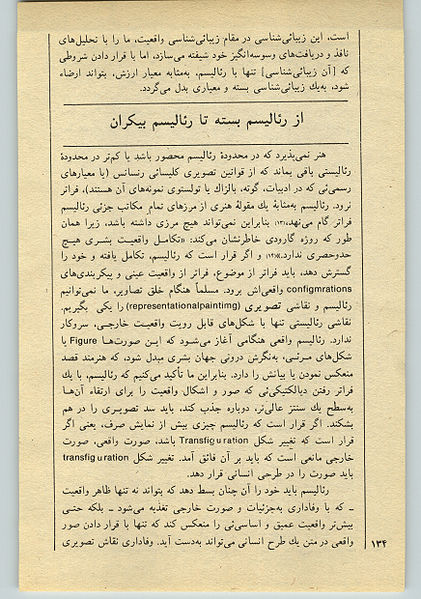 است، این زیبائی‌شناسی در مقام زیبائی‌شناسی واقعیت، ما را با تحلیل‌های
نافذ و دریافت‌های وسوسه‌انگیز خود شیفته می‌سازد، اما با قرار دادن شروطی
که [آن زیبائی‌شناسی] تنها با رئالیسم، به‌مثابه معیار ارزش، بتواند ارضاء
شود، به‌یك زیبائی‌شناسی بسته و معیاری بدل می‌گردد.
از رئالیسم بسته تا رئالیسم بیکران
هنر نمی‌پذیرد که در محدودهٔ رئالیسم محصور باشد یا کم‌تر در محدودهٔ
رئالیستی باقی بماند که از قوانین تصویری کلیسائی رنسانس (یا معیارهای
رسمی‌ئی که در ادبیات، گوته، بالزاك یا تولستوی نمونه‌های آن هستند)، فراتر
نرود. رئالیسم به‌مثابهٔ یك مقولهٔ هنری از مرزهای تمام مکاتب جزئی رئالیسم
فراتر گام می‌نهد،(۱۳) بنابراین نمی‌تواند هیچ مرزی داشته باشد، زیرا همان
طور که روژه گارودی خاطرنشان می‌کند: «تکامـل واقعیت بشـری هیـچ
حدوحصری ندارد.»(۱۴) و اگر قرار است که رئالیسم، تکامل یافته و خود را
گسترش دهد، باید فراتر از موضوع، فراتر از واقعیت عینی و پیکربندی‌های
configmrations واقعی‌اش برود. مسلماً هنگام خلق تصاویر، ما نمی‌توانیم
رئالیسم و نقاشی تصویری (representationalpaintimg) را یکی بگیریم.
نقاشی رئالیستی تنها با شکل‌های قابل رویت واقعیـت خارجـی، سروکار
ندارد. رئالیسم واقعی هنگامی آغاز می‌شـود که ایـن صورت‌هـا Figure یا
شکل‌های مـرئـی، به‌نگرش درونی جهان بشری مبدل شود، که هنرمند قصد
منعکس نمودن یا بیانش را دارد. بنابراین ما تأکید می‌کنیم که رئالیسم، با یك
فراتر رفتن دیالکتیکی‌ئی که صور و اشکال واقعیت را برای ارتقاء آن‌هـا
به‌سطح یك سنتز عالی‌تر، دوباره جذب کند، باید سد تصویـری را در هم
بشکند. اگر قرار است که رئالیسم چیزی بیش از نمایش صرف، یعنی اگر
قرار است که تغییر شکل Transfiguration باشد، صورت واقعی، صورت
خارجی مانعی است که باید بر آن فائق آمد. تغییر شکل transfiguration
باید صورت را در طرحی انسانی قرار دهد.
رئالیسم باید خود را آن چنان بسط دهد که بتواند نه تنها ظاهر واقعیت
ـ که با وفاداری به‌جزئیات و صورت خارجی تغذیه می‌شود ـ بلکه حتـی
بیش‌تر واقعیت عمیق و اساسی‌ئی را منعکس کند که تنها با قرار دادن صور
واقعی در متن یك طرح انسانی می‌تواند به‌دست آید. وفاداری نقاش تصویری
۱۳۴